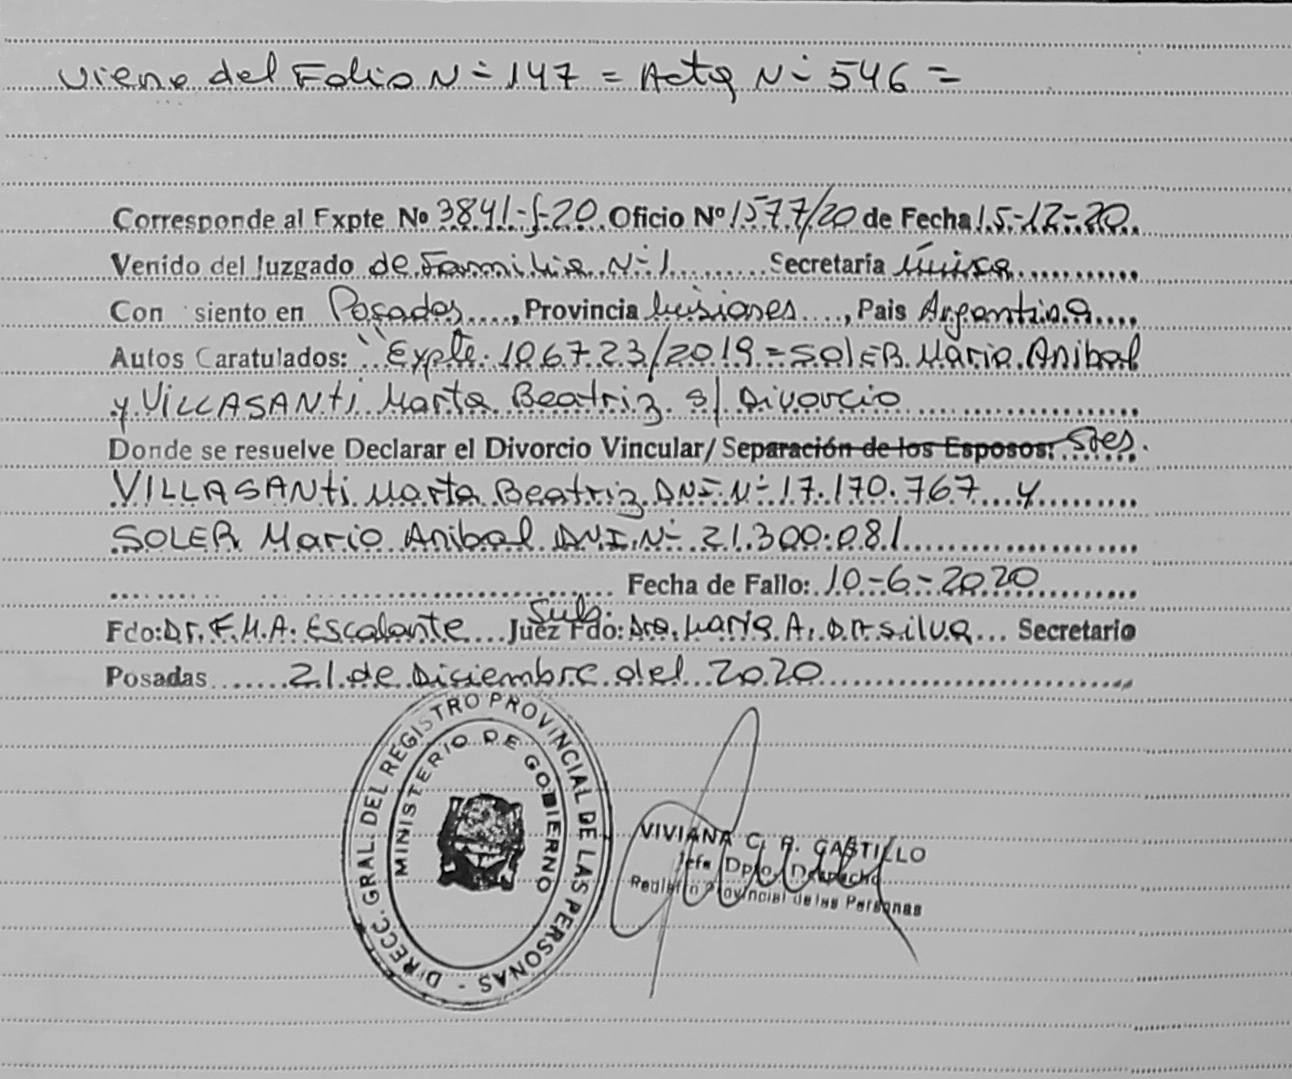 Viene del Folio N= 147 = Acta N= 546 =
Corresponde al Expte No 3841-f-20 Oficio Nº 1577/20 de Fecha 15-12-20
Venido del Juzgado de Familia N=1 Secretaría Única
Con siento en Posadas, Provincia Misiones, Pais Argentina
Autos Caratulados: "Expte. 106723/2019 = SOLER Mario Anibal
y VILLASANti Marta Beatriz s/ Divorcio
Donde se resuelve Declarar el Divorcio Vincular/ Separación de los Esposos: Sres.
VILLASANti Marta Beatriz DNI N= 17.170.767 y
SOLER Mario Anibal DNI N= 21.300.081
Fecha de Fallo: 10-6-2020
Fdo: Dr. F.M.A. Escalante Juez Sub. Fdo: Dra. Maria A. Da Silva Secretario
Posadas 21 de Diciembre del 2020
DIRECC. GRAL. DEL REGISTRO PROVINCIAL DE LAS PERSONAS -
MINISTERIO DE GOBIERNO
VIVIANA C. R. CASTILLO
Jefe Dpto. Despacho
Registro Provincial de las Personas